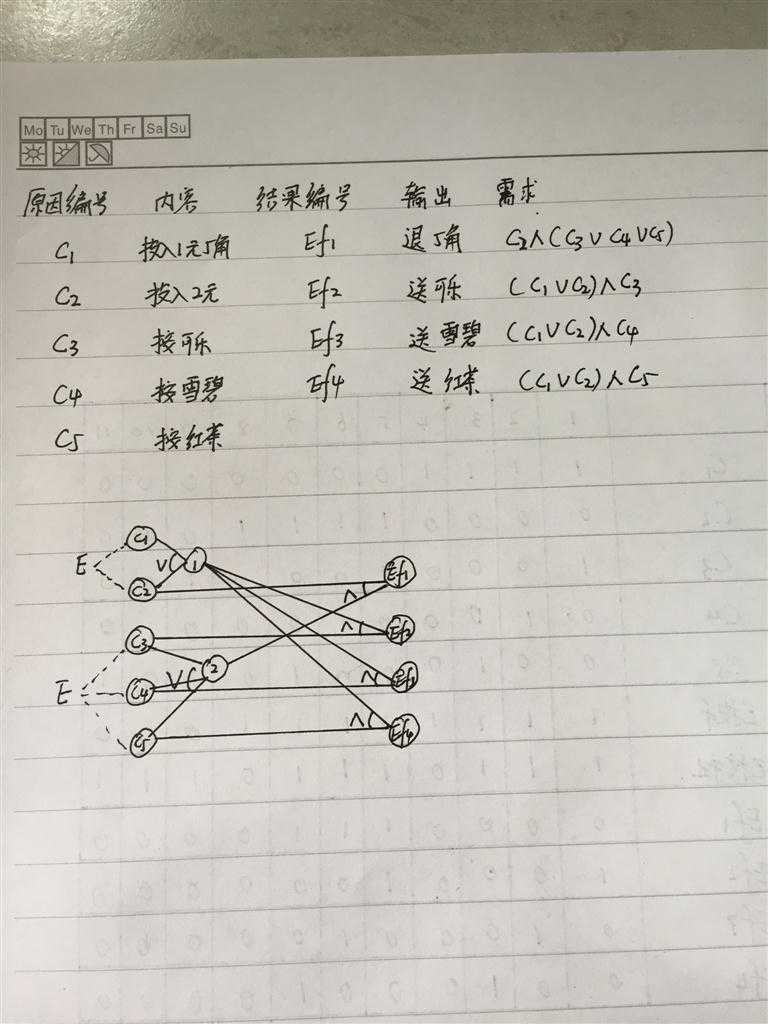 Mo Tu We Th Fr Sa Su
原因编号 内容 结果编号 输出 需求
C1 投入1元5角 Ef1 退5角 C2∧(C3∨C4∨C5)
C2 投入2元 Ef2 送可乐 (C1∨C2)∧C3
C3 按可乐 Ef3 送雪碧 (C1∨C2)∧C4
C4 按雪碧 Ef4 送红茶 (C1∨C2)∧C5
C5 按红茶
C1
E ∨ 1 Ef1
C2 ∧
C3 ∧ Ef2
2
E C4 ∨ ∧ Ef3
C5 ∧ Ef4